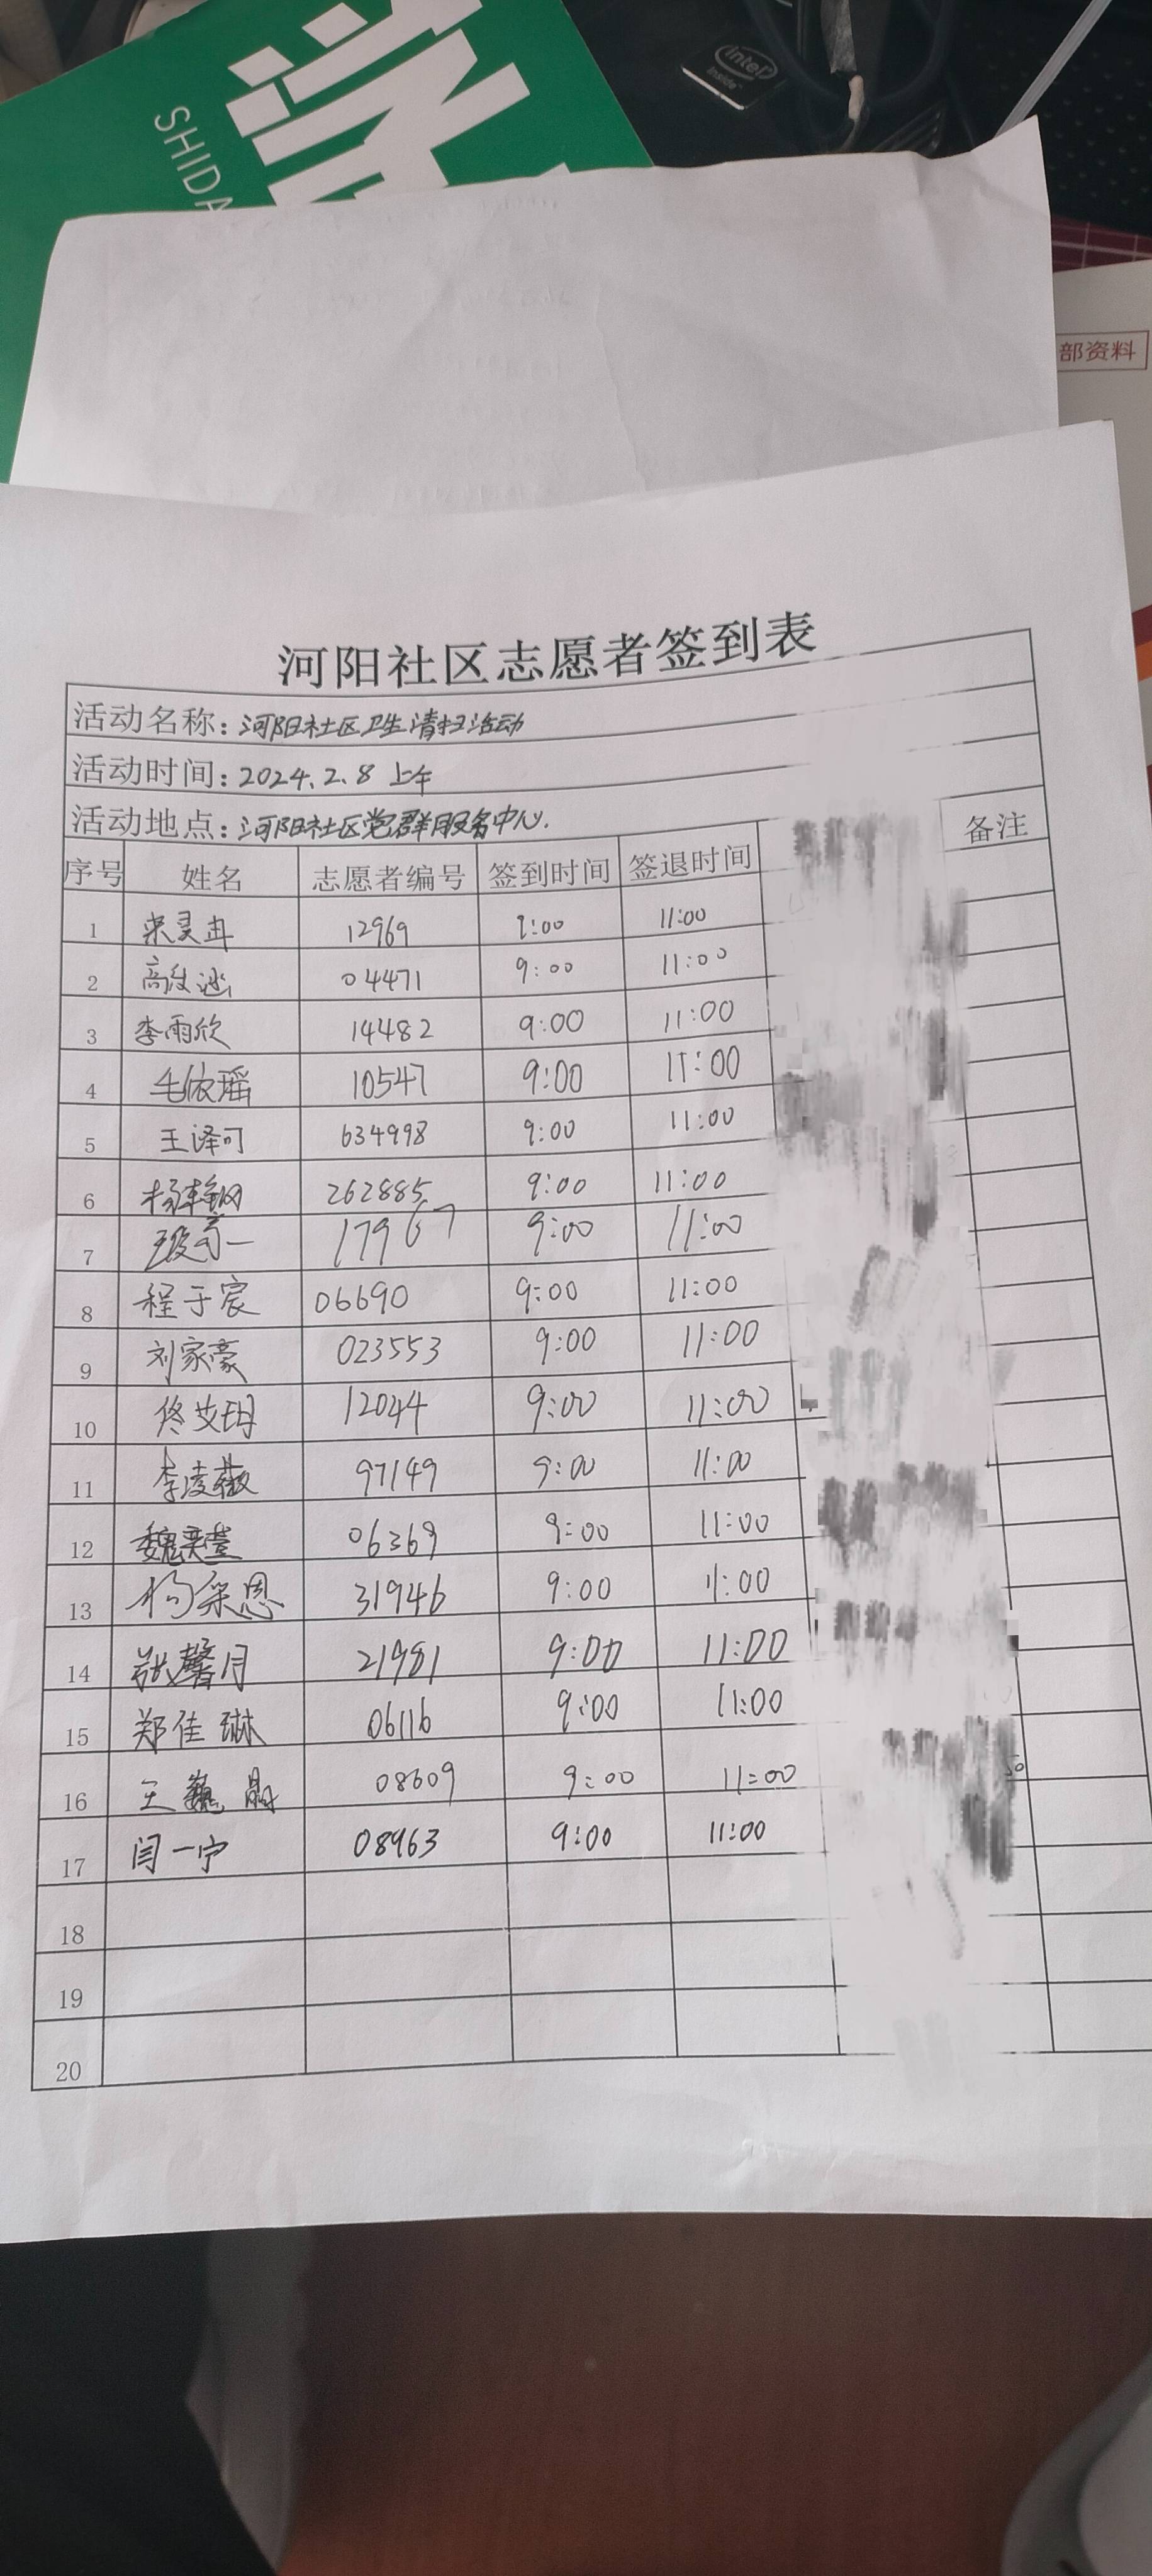 SHIDA
intel
inside
部资料
河阳社区志愿者签到表
活动名称：河阳社区卫生清扫活动
活动时间：2024.2.8 上午
活动地点：河阳社区党群服务中心.
序号 姓名 志愿者编号 签到时间 签退时间 备注
1 12969 9:00 11:00
2 04471 9:00 11:00
3 李雨欣 14482 9:00 11:00
4 毛依瑶 10547 9:00 11:00
5 王译可 634998 9:00 11:00
6 262885 9:00 11:00
7 17967 9:00 11:00
8 程于宸 06690 9:00 11:00
9 刘家豪 023553 9:00 11:00
10 佟艾玥 12044 9:00 11:00
11 李凌薇 97149 9:00 11:00
12 06369 9:00 11:00
13 杨采恩 31946 9:00 11:00
14 张馨月 21981 9:00 11:00
15 郑佳琳 06116 9:00 11:00
16 王巍 08609 9:00 11:00
17 闫一宁 08963 9:00 11:00
18
19
20